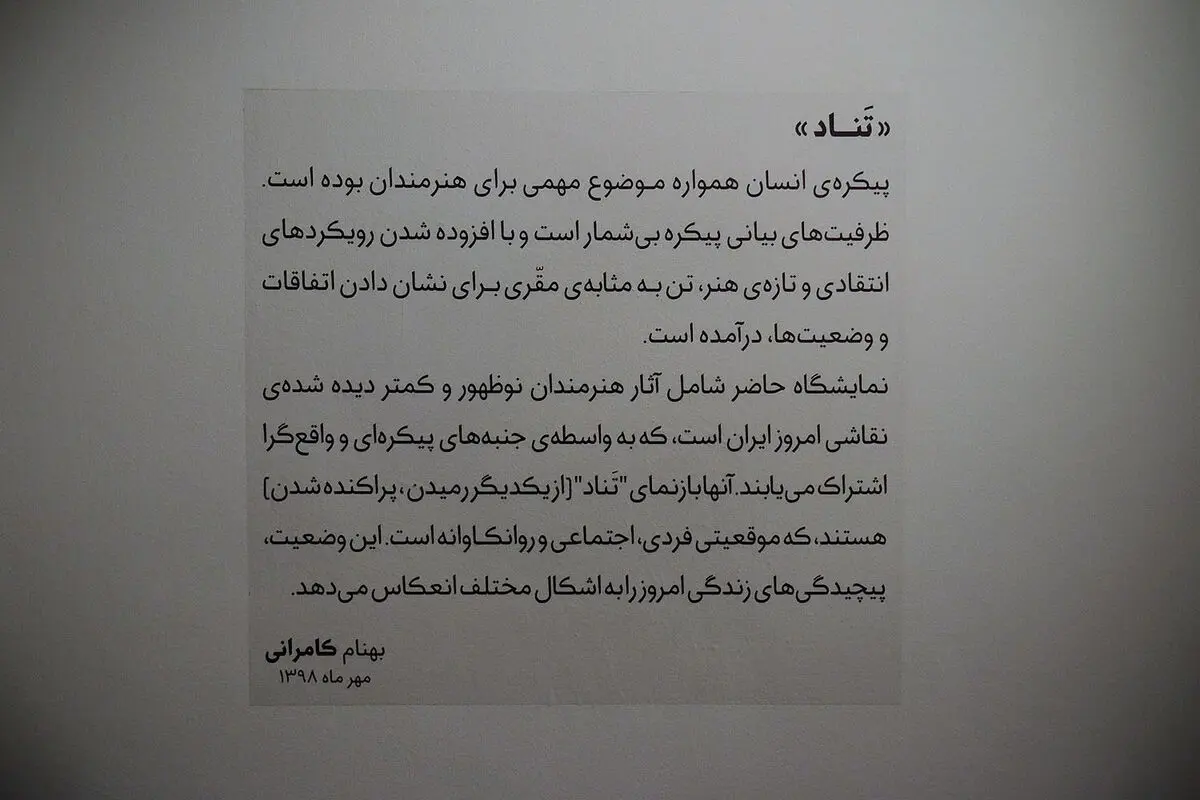 «تَنـاد»
پیکره‌ی انسان همواره موضوع مهمی برای هنرمندان بوده است.
ظرفیت‌های بیانی پیکره بی‌شمار است و با افزوده شدن رویکردهای
انتقادی و تازه‌ی هنر، تن به مثابه‌ی مقّری برای نشان دادن اتفاقات
و وضعیت‌ها، درآمده است.
نمایشگاه حاضر شامل آثار هنرمندان نوظهور و کمتر دیده شده‌ی
نقاشی امروز ایران است، که به واسطه‌ی جنبه‌های پیکره‌ای و واقع‌گرا
اشتراک می‌یابند. آنها بازنمای "تَناد" [از یکدیگر رمیدن، پراکنده شدن]
هستند، که موقعیتی فردی، اجتماعی و روانکاوانه است. این وضعیت،
پیچیدگی‌های زندگی امروز را به اشکال مختلف انعکاس می‌دهد.
بهنام کامرانی
مهر ماه ۱۳۹۸